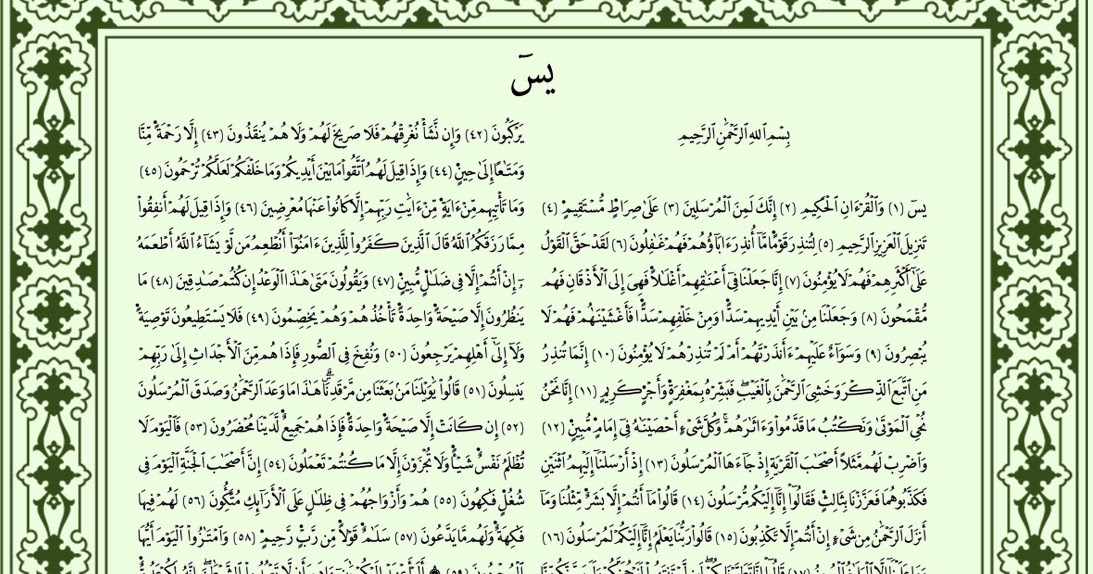 يسٓ
بِسْمِ ٱللَّهِ ٱلرَّحْمَٰنِ ٱلرَّحِيمِ
يسٓ ﴿١﴾ وَٱلْقُرْءَانِ ٱلْحَكِيمِ ﴿٢﴾ إِنَّكَ لَمِنَ ٱلْمُرْسَلِينَ ﴿٣﴾ عَلَىٰ صِرَٰطٍ مُّسْتَقِيمٍ ﴿٤﴾
تَنزِيلَ ٱلْعَزِيزِ ٱلرَّحِيمِ ﴿٥﴾ لِتُنذِرَ قَوْمًا مَّآ أُنذِرَ ءَابَآؤُهُمْ فَهُمْ غَٰفِلُونَ ﴿٦﴾ لَقَدْ حَقَّ ٱلْقَوْلُ
عَلَىٰٓ أَكْثَرِهِمْ فَهُمْ لَا يُؤْمِنُونَ ﴿٧﴾ إِنَّا جَعَلْنَا فِىٓ أَعْنَٰقِهِمْ أَغْلَٰلًا فَهِىَ إِلَى ٱلْأَذْقَانِ فَهُم
مُّقْمَحُونَ ﴿٨﴾ وَجَعَلْنَا مِنۢ بَيْنِ أَيْدِيهِمْ سَدًّا وَمِنْ خَلْفِهِمْ سَدًّا فَأَغْشَيْنَٰهُمْ فَهُمْ لَا
يُبْصِرُونَ ﴿٩﴾ وَسَوَآءٌ عَلَيْهِمْ ءَأَنذَرْتَهُمْ أَمْ لَمْ تُنذِرْهُمْ لَا يُؤْمِنُونَ ﴿١٠﴾ إِنَّمَا تُنذِرُ
مَنِ ٱتَّبَعَ ٱلذِّكْرَ وَخَشِىَ ٱلرَّحْمَٰنَ بِٱلْغَيْبِ ۖ فَبَشِّرْهُ بِمَغْفِرَةٍ وَأَجْرٍ كَرِيمٍ ﴿١١﴾ إِنَّا نَحْنُ
نُحْىِ ٱلْمَوْتَىٰ وَنَكْتُبُ مَا قَدَّمُوا۟ وَءَاثَٰرَهُمْ ۚ وَكُلَّ شَىْءٍ أَحْصَيْنَٰهُ فِىٓ إِمَامٍ مُّبِينٍ ﴿١٢﴾
وَٱضْرِبْ لَهُم مَّثَلًا أَصْحَٰبَ ٱلْقَرْيَةِ إِذْ جَآءَهَا ٱلْمُرْسَلُونَ ﴿١٣﴾ إِذْ أَرْسَلْنَآ إِلَيْهِمُ ٱثْنَيْنِ
فَكَذَّبُوهُمَا فَعَزَّزْنَا بِثَالِثٍ فَقَالُوٓا۟ إِنَّآ إِلَيْكُم مُّرْسَلُونَ ﴿١٤﴾ قَالُوا۟ مَآ أَنتُمْ إِلَّا بَشَرٌ مِّثْلُنَا وَمَآ
أَنزَلَ ٱلرَّحْمَٰنُ مِن شَىْءٍ إِنْ أَنتُمْ إِلَّا تَكْذِبُونَ ﴿١٥﴾ قَالُوا۟ رَبُّنَا يَعْلَمُ إِنَّآ إِلَيْكُمْ لَمُرْسَلُونَ ﴿١٦﴾
يَرْكَبُونَ ﴿٤٢﴾ وَإِن نَّشَأْ نُغْرِقْهُمْ فَلَا صَرِيخَ لَهُمْ وَلَا هُمْ يُنقَذُونَ ﴿٤٣﴾ إِلَّا رَحْمَةً مِّنَّا
وَمَتَٰعًا إِلَىٰ حِينٍ ﴿٤٤﴾ وَإِذَا قِيلَ لَهُمُ ٱتَّقُوا۟ مَا بَيْنَ أَيْدِيكُمْ وَمَا خَلْفَكُمْ لَعَلَّكُمْ تُرْحَمُونَ ﴿٤٥﴾
وَمَا تَأْتِيهِم مِّنْ ءَايَةٍ مِّنْ ءَايَٰتِ رَبِّهِمْ إِلَّا كَانُوا۟ عَنْهَا مُعْرِضِينَ ﴿٤٦﴾ وَإِذَا قِيلَ لَهُمْ أَنفِقُوا۟
مِمَّا رَزَقَكُمُ ٱللَّهُ قَالَ ٱلَّذِينَ كَفَرُوا۟ لِلَّذِينَ ءَامَنُوٓا۟ أَنُطْعِمُ مَن لَّوْ يَشَآءُ ٱللَّهُ أَطْعَمَهُ
ٓ إِنْ أَنتُمْ إِلَّا فِى ضَلَٰلٍ مُّبِينٍ ﴿٤٧﴾ وَيَقُولُونَ مَتَىٰ هَٰذَا ٱلْوَعْدُ إِن كُنتُمْ صَٰدِقِينَ ﴿٤٨﴾ مَا
يَنظُرُونَ إِلَّا صَيْحَةً وَٰحِدَةً تَأْخُذُهُمْ وَهُمْ يَخِصِّمُونَ ﴿٤٩﴾ فَلَا يَسْتَطِيعُونَ تَوْصِيَةً
وَلَآ إِلَىٰٓ أَهْلِهِمْ يَرْجِعُونَ ﴿٥٠﴾ وَنُفِخَ فِى ٱلصُّورِ فَإِذَا هُم مِّنَ ٱلْأَجْدَاثِ إِلَىٰ رَبِّهِمْ
يَنسِلُونَ ﴿٥١﴾ قَالُوا۟ يَٰوَيْلَنَا مَنۢ بَعَثَنَا مِن مَّرْقَدِنَا ۜ ۗ هَٰذَا مَا وَعَدَ ٱلرَّحْمَٰنُ وَصَدَقَ ٱلْمُرْسَلُونَ
﴿٥٢﴾ إِن كَانَتْ إِلَّا صَيْحَةً وَٰحِدَةً فَإِذَا هُمْ جَمِيعٌ لَّدَيْنَا مُحْضَرُونَ ﴿٥٣﴾ فَٱلْيَوْمَ لَا
تُظْلَمُ نَفْسٌ شَيْـًٔا وَلَا تُجْزَوْنَ إِلَّا مَا كُنتُمْ تَعْمَلُونَ ﴿٥٤﴾ إِنَّ أَصْحَٰبَ ٱلْجَنَّةِ ٱلْيَوْمَ فِى
شُغُلٍ فَٰكِهُونَ ﴿٥٥﴾ هُمْ وَأَزْوَٰجُهُمْ فِى ظِلَٰلٍ عَلَى ٱلْأَرَآئِكِ مُتَّكِـُٔونَ ﴿٥٦﴾ لَهُمْ فِيهَا
فَٰكِهَةٌ وَلَهُم مَّا يَدَّعُونَ ﴿٥٧﴾ سَلَٰمٌ قَوْلًا مِّن رَّبٍّ رَّحِيمٍ ﴿٥٨﴾ وَٱمْتَٰزُوا۟ ٱلْيَوْمَ أَيُّهَا